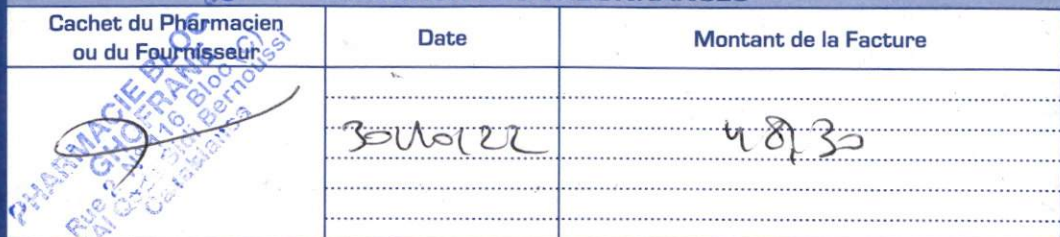 Cachet du Pharmacien
ou du Fournisseur
Date
Montant de la Facture
PHARMACIE BLOC
GHOFRANE
Rue 2 N° 116 Bloc (C)
Al Qods Sidi Bernoussi
Casablanca
48,30